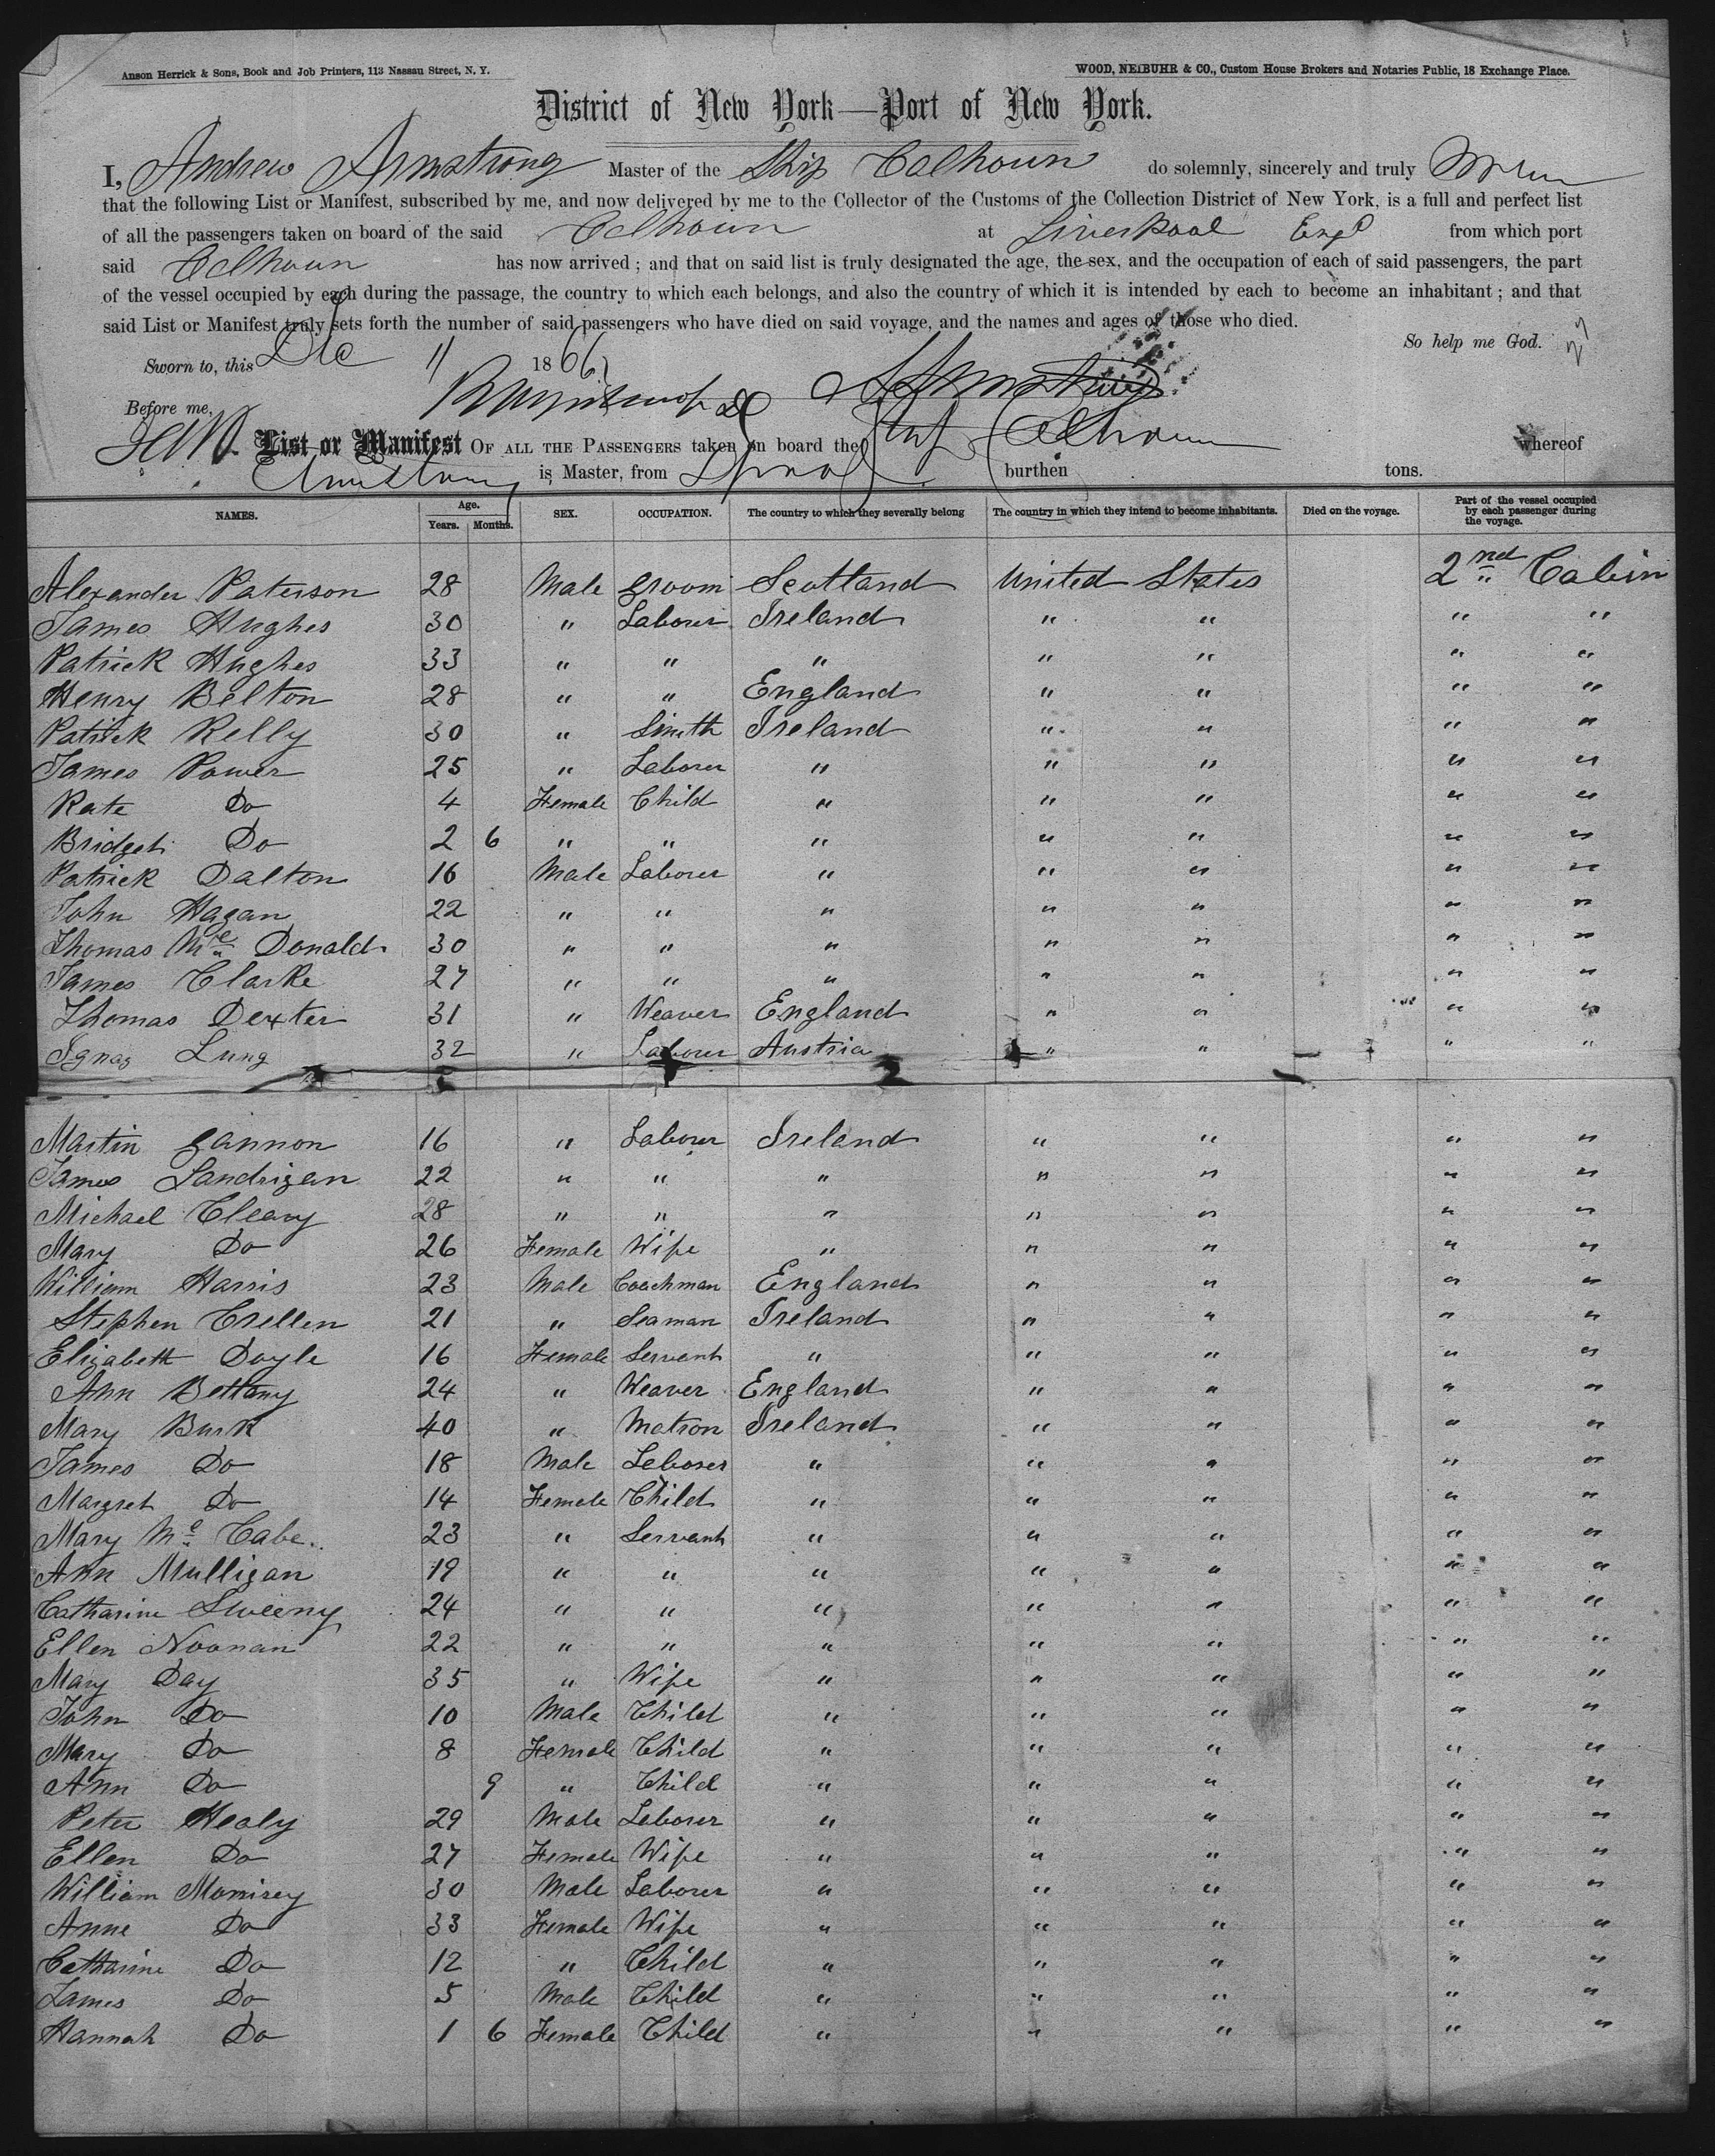 Anson Herrick & Sons, Book and Job Printers, 113 Nassau Street, N. Y.
WOOD, NEIBUHR & CO., Custom House Brokers and Notaries Public, 18 Exchange Place.
District of New York—Port of New York.
I, Andrew Armstrong Master of the Ship Calhoun do solemnly, sincerely and truly
that the following List or Manifest, subscribed by me, and now delivered by me to the Collector of the Customs of the Collection District of New York, is a full and perfect list
of all the passengers taken on board of the said Calhoun at Liverpool Engd from which port
said Calhoun has now arrived; and that on said list is truly designated the age, the sex, and the occupation of each of said passengers, the part
of the vessel occupied by each during the passage, the country to which each belongs, and also the country of which it is intended by each to become an inhabitant; and that
said List or Manifest truly sets forth the number of said passengers who have died on said voyage, and the names and ages of those who died.
So help me God.
Sworn to, this Dec 11 1866
Before me, A Armstrong
List or Manifest OF ALL THE PASSENGERS taken on board the Ship Calhoun whereof
Armstrong is Master, from Lpool burthen tons.
NAMES. Age. Years. Months. SEX. OCCUPATION. The country to which they severally belong The country in which they intend to become inhabitants. Died on the voyage. Part of the vessel occupied by each passenger during the voyage.
Alexander Paterson 28 Male Groom Scotland United States 2nd Cabin
James Hughes 30 " Laborer Ireland " " " "
Patrick Hughes 33 " " " " " " "
Henry Belton 28 " " England " " " "
Patrick Kelly 30 " Smith Ireland " " " "
James Power 25 " Laborer " " " " "
Kate Do 4 Female Child " " " " "
Bridget Do 2 6 " " " " " " "
Patrick Dalton 16 Male Laborer " " " " "
John Hagan 22 " " " " " " "
Thomas Mc Donald 30 " " " " " " "
James Clarke 27 " " " " " " "
Thomas Dexter 31 " Weaver England " " " "
Ignaz Lung 32 " Laborer Austria " " " "
Martin Gannon 16 " Laborer Ireland " " " "
James Landrigan 22 " " " " " " "
Michael Cleary 28 " " " " " " "
Mary Do 26 Female Wife " " " " "
William Harris 23 Male Coachman England " " " "
Stephen Crellen 21 " Seaman Ireland " " " "
Elizabeth Doyle 16 Female Servant " " " " "
Ann Bettany 24 " Weaver England " " " "
Mary Burk 40 " Matron Ireland " " " "
James Do 18 Male Laborer " " " " "
Margret Do 14 Female Child " " " " "
Mary Mc Cabe 23 " Servant " " " " "
Ann Mulligan 19 " " " " " " "
Catharine Sweeny 24 " " " " " " "
Ellen Noonan 22 " " " " " " "
Mary Day 35 " Wife " " " " "
John Do 10 Male Child " " " " "
Mary Do 8 Female Child " " " " "
Ann Do 9 " Child " " " " "
Peter Healy 29 Male Laborer " " " " "
Ellen Do 27 Female Wife " " " " "
William Momisey 30 Male Laborer " " " " "
Anne Do 33 Female Wife " " " " "
Catharine Do 12 " Child " " " " "
James Do 5 Male Child " " " " "
Hannah Do 1 6 Female Child " " " " "